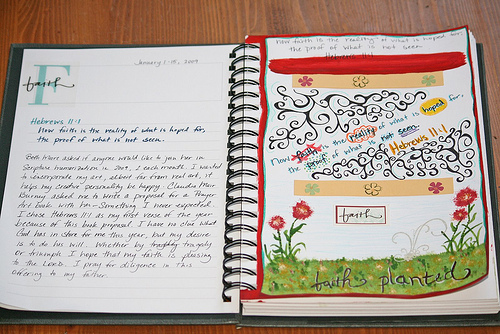 January 1-15, 2009
F
faith
Hebrews 11:1
Now faith is the reality of what is hoped for,
the proof of what is not seen.
Beth Moore asked if anyone would like to join her in
Scripture memorization in 2009, 2 each month. I wanted
to incorporate my art, albeit far from real art, it
helps my creative personality be happy. Claudia Mair
Burney asked me to write a proposal for a Prayer
Art book with her - Something I never expected.
I chose Hebrews 11:1 as my first verse of the year
because of this book proposal. I have no clue what
God has in store for me this year, but my desire
is to do his will. Whether by tragedy
or triumph I hope that my faith is pleasing
to the Lord. I pray for diligence in this
offering to my father.
Now faith is the reality of what is hoped for,
the proof of what is not seen.
Hebrews 11:1
Now faith is the reality of what is hoped for,
the proof of what is not seen.
Hebrews 11:1
faith
faith planted